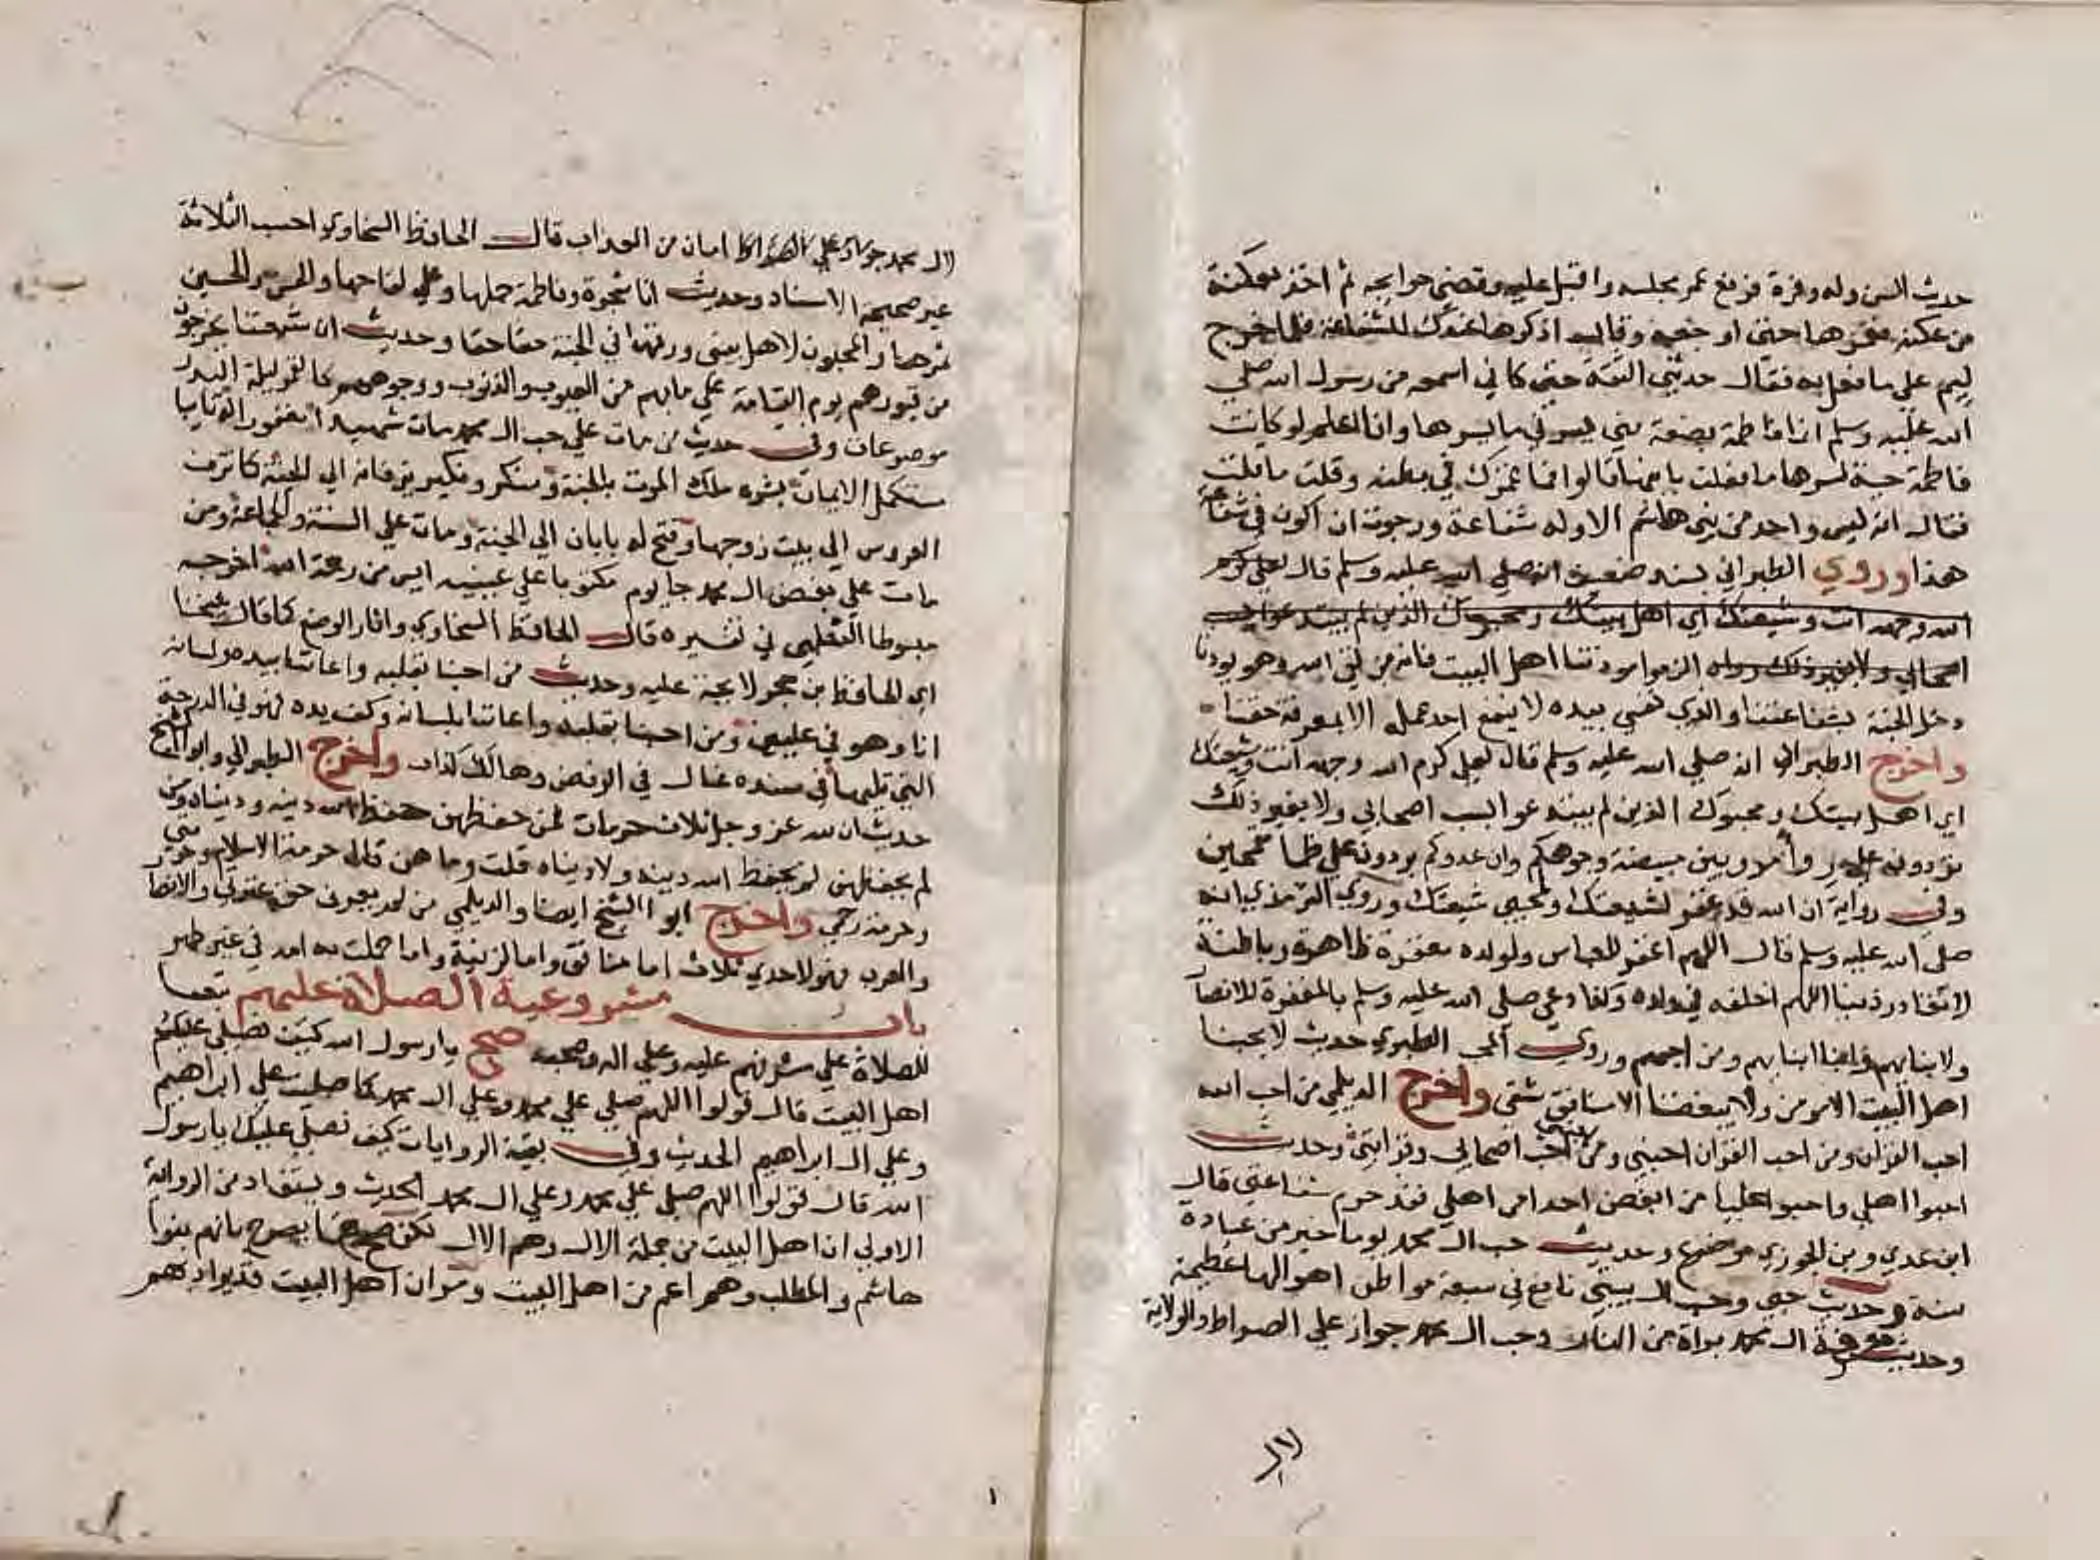 حديث السن وله وفرة فرفع عمر مجلسه واقبل عليه وقضي حوايجه ثم اخذ بعكنة
من عكنه فغمزها حتي اوجعه وقال اذكرها عندك للشفاعة فلما خرج
ليم علي ما فعل به فقال حدثني الثقة حتي كاني اسمعه من رسول الله صلي
الله عليه وسلم انما فاطمة بضعة مني يسرني ما يسرها وانا اعلم لو كانت
فاطمة حية لسرها ما فعلت بابنها قالوا فما غمزك في بطنه وقلت ما قلت
فقال انه ليس واحد من بني هاشم الا وله شفاعة ورجوت ان اكون في شفاعة
هذا وروي الطبراني بسند ضعيف انه صلي الله عليه وسلم قال لعلي كرم
الله وجهه انت وشيعتك اي اهل بيتك ومحبوك الذين لم يبتدعوا بسب
اصحابي ولا بغير ذلك الزموا مودتنا اهل البيت فانه من لقي الله وهو يودنا
دخل الجنة بشفاعتنا والذي نفسي بيده لا ينفع احد عمله الا بمعرفة حقنا
واخرج الطبراني انه صلي الله عليه وسلم قال لعلي كرم الله وجهه انت وشيعتك
اي اهل بيتك ومحبوك الذين لم يبتدعوا بسب اصحابي ولا بغير ذلك
تردون علي مبيضة وجوهكم وان عدوكم يردون علي ظما مقمحين
وفي رواية ان الله قد غفر لشيعتك ولمحبي شيعتك وروي الترمذي انه
صلي الله عليه وسلم قال اللهم اغفر للعباس ولولده مغفرة ظاهرة وباطنة
لا تغادر ذنبا اللهم اخلفه في ولده وكذا دعي صلي الله عليه وسلم بالمغفرة للانصار
ولابنايهم وابنا ابنايهم ومن احبهم وروي المحب الطبري حديث لا يحبنا
اهل البيت الا مومن ولا يبغضنا الا منافق شقي واخرج الديلمي من احب الله
احب القران ومن احب القران احبني ومن احبني احب اصحابي وقرابتي وحديث
احبوا اهلي واحبوا عليا من ابغض احدا من اهلي فقد حرم شفاعتي قال
ابن عدي وبن الجوزي موضوع وحديث حب ال محمد يوما خير من عبادة
سنة وحديث حبي وحب ال بيتي نافع في سبعة مواطن اهوالها عظيمة
وحديث معرفة ال محمد براة من النار وحب ال محمد جواز علي الصراط والولاية
لال
لال محمد امان من العذاب قال الحافظ السخاوي احسب الثلاثة
غير صحيحة الاسناد وحديث انا شجرة وفاطمة حملها وعلي لقاحها والحسن والحسين
ثمرها والمحبون لاهل بيتي ورقها في الجنة حقا حقا وحديث ان شيعتنا يخرجون
من قبورهم يوم القيامة علي ما بهم من العيوب والذنوب ووجوههم كالقمر ليلة البدر
موضوعان وفي حديث من مات علي حب ال محمد مات شهيدا مغفورا له تايبا
مستكمل الايمان يبشره ملك الموت بالجنة ومنكر ونكير يزفانه الي الجنة كما تزف
العروس الي بيت زوجها وفتح له بابان الي الجنة ومات علي السنة والجماعة ومن
مات علي بغض ال محمد جا يوم مكتوبا علي عينيه ايس من رحمة الله اخرجه
مبسوطا الثعلبي في تفسيره قال الحافظ السخاوي واثار الوضع كما قال شيخنا
اي الحافظ بن حجر لايحة عليه وحديث من احبنا بقلبه واعاننا بيده ولسانه
انا وهو في عليين ومن احبنا بقلبه واعاننا بلسانه وكف يده فهو في الدرجة
التي تليها في سنده غال في الرفض وهالك كذاب واخرج الطبراني وابو الشيخ
حديث ان لله عز وجل ثلاث حرمات فمن حفظهن حفظ الله دينه ودنياه ومن
لم يحفظهن لم يحفظ الله دينه ولا دنياه قلت وما هن قال حرمة الاسلام وحرمتي
وحرمة رحمي واخرج ابو الشيخ ايضا والديلمي من لم يعرف حق عترتي والانصار
والعرب فهو لاحدي ثلاث اما منافق واما لزنية واما حملت به امه في غير طهر
باب مشروعية الصلاة عليهم تبعا
للصلاة علي مشرفهم عليه وعلي اله وصحبه صح يا رسول الله كيف نصلي عليكم
اهل البيت قال قولوا اللهم صلي علي محمد وعلي ال محمد كما صليت علي ابراهيم
وعلي ال ابراهيم الحديث وفي بقية الروايات كيف نصلي عليك يا رسول
الله قال قولوا اللهم صلي علي محمد وعلي ال محمد الحديث ويستفاد من الرواية
الاولي ان اهل البيت من جملة الال وهم الال لكن صح ما يصرح بانهم بنوا
هاشم والمطلب وهم اعم من اهل البيت ومر ان اهل البيت قد يراد بهم
١